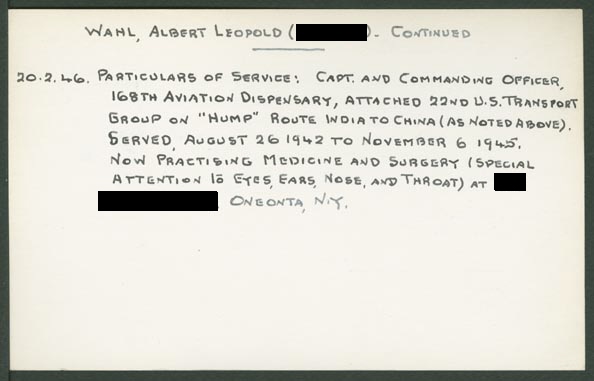 WAHL, ALBERT LEOPOLD ( ) - CONTINUED
20.2.46. PARTICULARS OF SERVICE: CAPT. AND COMMANDING OFFICER,
168TH AVIATION DISPENSARY, ATTACHED 22ND U.S. TRANSPORT
GROUP ON "HUMP" ROUTE INDIA TO CHINA (AS NOTED ABOVE).
SERVED, AUGUST 26 1942 TO NOVEMBER 6 1945.
NOW PRACTISING MEDICINE AND SURGERY (SPECIAL
ATTENTION TO EYES, EARS, NOSE, AND THROAT) AT
ONEONTA, N.Y.